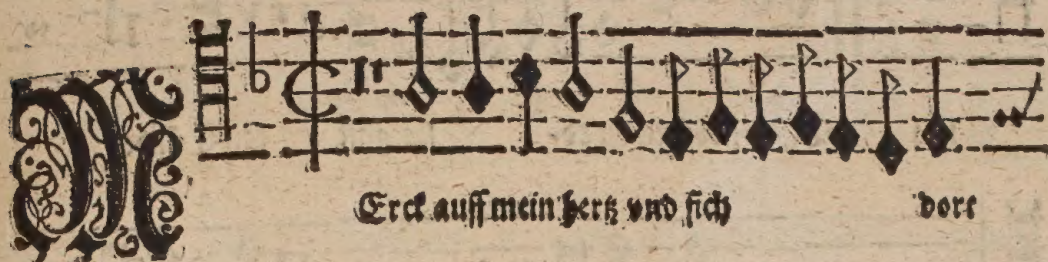 MErck auff mein hertz vnd sich dort